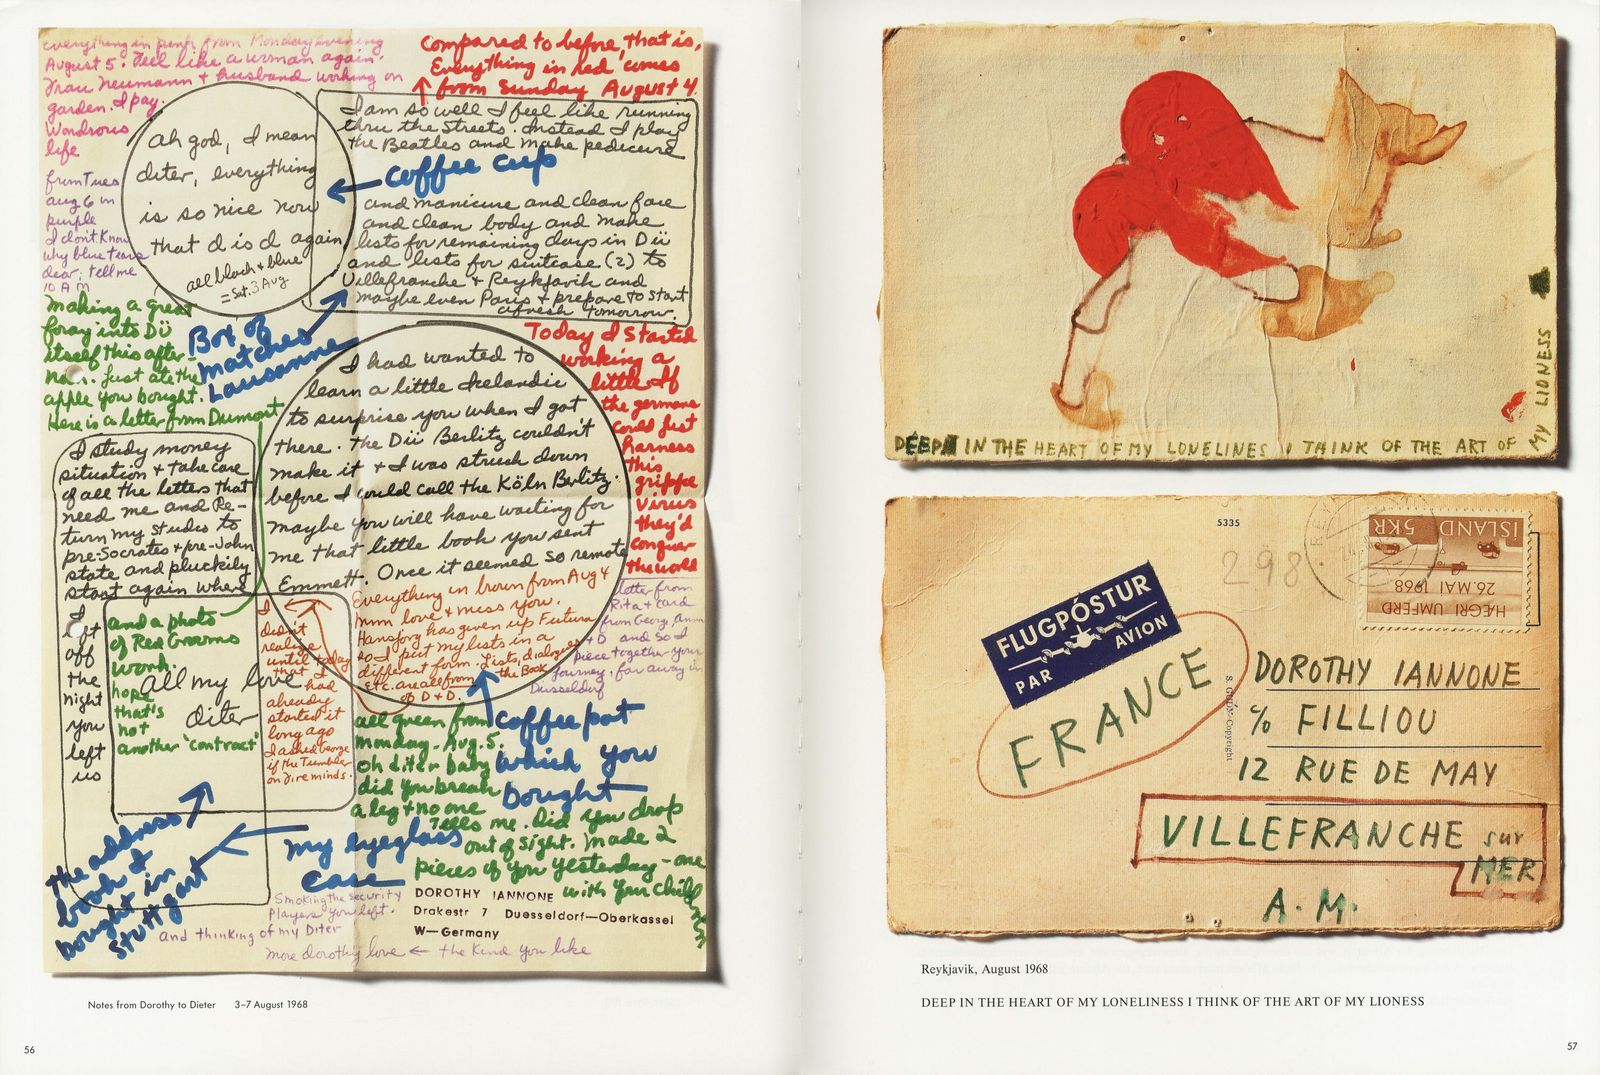 everything in pink from Monday evening
August 5. Feel like a woman again.
Frau Neumann + husband working on
garden. I pay.
Wondrous
life
Compared to before, that is,
Everything in red comes
from Sunday August 4.
ah god, I mean
diter, everything
is so nice now
that d is d again
all black + blue
= Sat. 3 Aug
I am so well I feel like running
thru the streets. Instead I play
the Beatles and make pedicure
coffee cup
and manicure and clean face
and clean body and make
lists for remaining days in Dü
and lists for suitcase (2) to
Villefranche + Reykjavik and
maybe even Paris + prepare to start
afresh tomorrow.
from Tues
aug 6 in
purple
I don't know
why blue tears
dear; tell me
10 AM
making a great
foray into Dü
itself this after-
noon. Just ate the
apple you bought.
Here is a letter from Dumont
Box of
matches
Lausanne
Today I started
working a
little. If
the germans
could just
harness
this
grippe
virus
they'd
conquer
the world
I had wanted to
learn a little Icelandic
to surprise you when I got
there. The Dü Berlitz couldn't
make it + I was struck down
before I could call the Köln Berlitz.
maybe you will have waiting for
me that little book you sent
Emmett. Once it seemed so remote
I study money
situation + take care
of all the letters that
need me and Re-
turn my studies to
pre-Socrates + pre-John
state and pluckily
start again where
I
left
off
the
night
you
left
us
and a photo
of Red Grooms
work.
hope
that's
not
another 'contract'
all my love
diter
I
didn't
realize
until today
that I
had
already
started it
long ago
I asked George
if the Tumbler
on fire minds.
Everything in brown from Aug 4
mm love + miss you.
Hansjorg has given up Futura
so I put my lists in a
different form. Lists, dialogues
etc. are all from the Book
of D + D.
letter from
Rita + card
from George, Ann
+ D and so I
piece together your
journey, far away in
Düsseldorf
all green from
Monday-Aug. 5.
oh diter baby
did you break
a leg + no one
tells me. Did you drop
out of sight. Made 2
pieces of you yesterday - one
with your children
coffee pot
which you
bought
my eyeglass
case
the address
book I
bought in
Stuttgart
Smoking the security
Players you left.
and thinking of my Diter
more dorothy love ← the kind you like
DOROTHY IANNONE
Drakestr 7 Duesseldorf—Oberkassel
W—Germany
Notes from Dorothy to Dieter 3–7 August 1968
56
DEEP IN THE HEART OF MY LONELINES I THINK OF THE ART OF MY LIONESS
5335
298
ÍSLAND 5KR
26. MAI 1968
HÆGRI UMFERÐ
FLUGPÓSTUR
PAR AVION
FRANCE
S. GUÐM. Copyright
DOROTHY IANNONE
c/o FILLIOU
12 RUE DE MAY
VILLEFRANCHE sur
MER
A.M.
Reykjavik, August 1968
DEEP IN THE HEART OF MY LONELINESS I THINK OF THE ART OF MY LIONESS
57